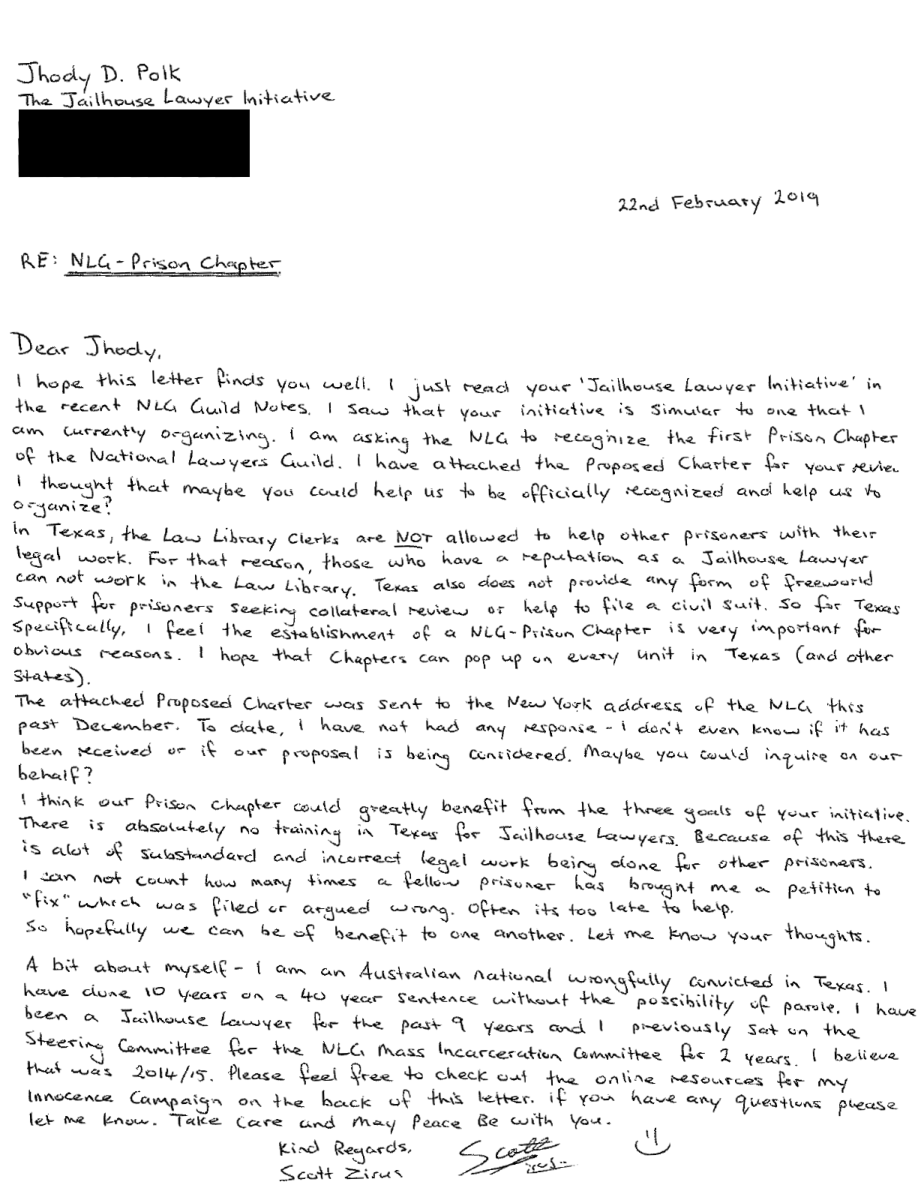 Jhody D. Polk
The Jailhouse Lawyer Initiative
22nd February 2019
RE: NLG - Prison Chapter
Dear Jhody,
I hope this letter finds you well. I just read your 'Jailhouse Lawyer Initiative' in
the recent NLG Guild Notes. I saw that your initiative is simular to one that I
am currently organizing. I am asking the NLG to recognize the first Prison Chapter
of the National Lawyers Guild. I have attached the Proposed Charter for your review
I thought that maybe you could help us to be officially recognized and help us to
organize?
In Texas, the Law Library Clerks are NOT allowed to help other prisoners with their
legal work. For that reason, those who have a reputation as a Jailhouse Lawyer
can not work in the Law Library. Texas also does not provide any form of freeworld
support for prisoners seeking collateral review or help to file a civil suit. So for Texas
specifically, I feel the establishment of a NLG-Prison Chapter is very important for
obvious reasons. I hope that Chapters can pop up on every unit in Texas (and other
States).
The attached Proposed Charter was sent to the New York address of the NLG this
past December. To date, I have not had any response - I don't even know if it has
been received or if our proposal is being considered. Maybe you could inquire on our
behalf?
I think our Prison Chapter could greatly benefit from the three goals of your initiative.
There is absolutely no training in Texas for Jailhouse Lawyers. Because of this there
is alot of substandard and incorrect legal work being done for other prisoners.
I can not count how many times a fellow prisoner has brought me a petition to
"fix" which was filed or argued wrong. Often its too late to help.
So hopefully we can be of benefit to one another. Let me know your thoughts.
A bit about myself - I am an Australian national wrongfully convicted in Texas. I
have done 10 years on a 40 year sentence without the possibility of parole. I have
been a Jailhouse Lawyer for the past 9 years and I previously sat on the
Steering Committee for the NLG Mass Incarceration Committee for 2 years. I believe
that was 2014/15. Please feel free to check out the online resources for my
Innocence Campaign on the back of this letter. if you have any questions please
let me know. Take Care and May Peace Be with You.
Kind Regards,
Scott Zirus
Scott Zirus